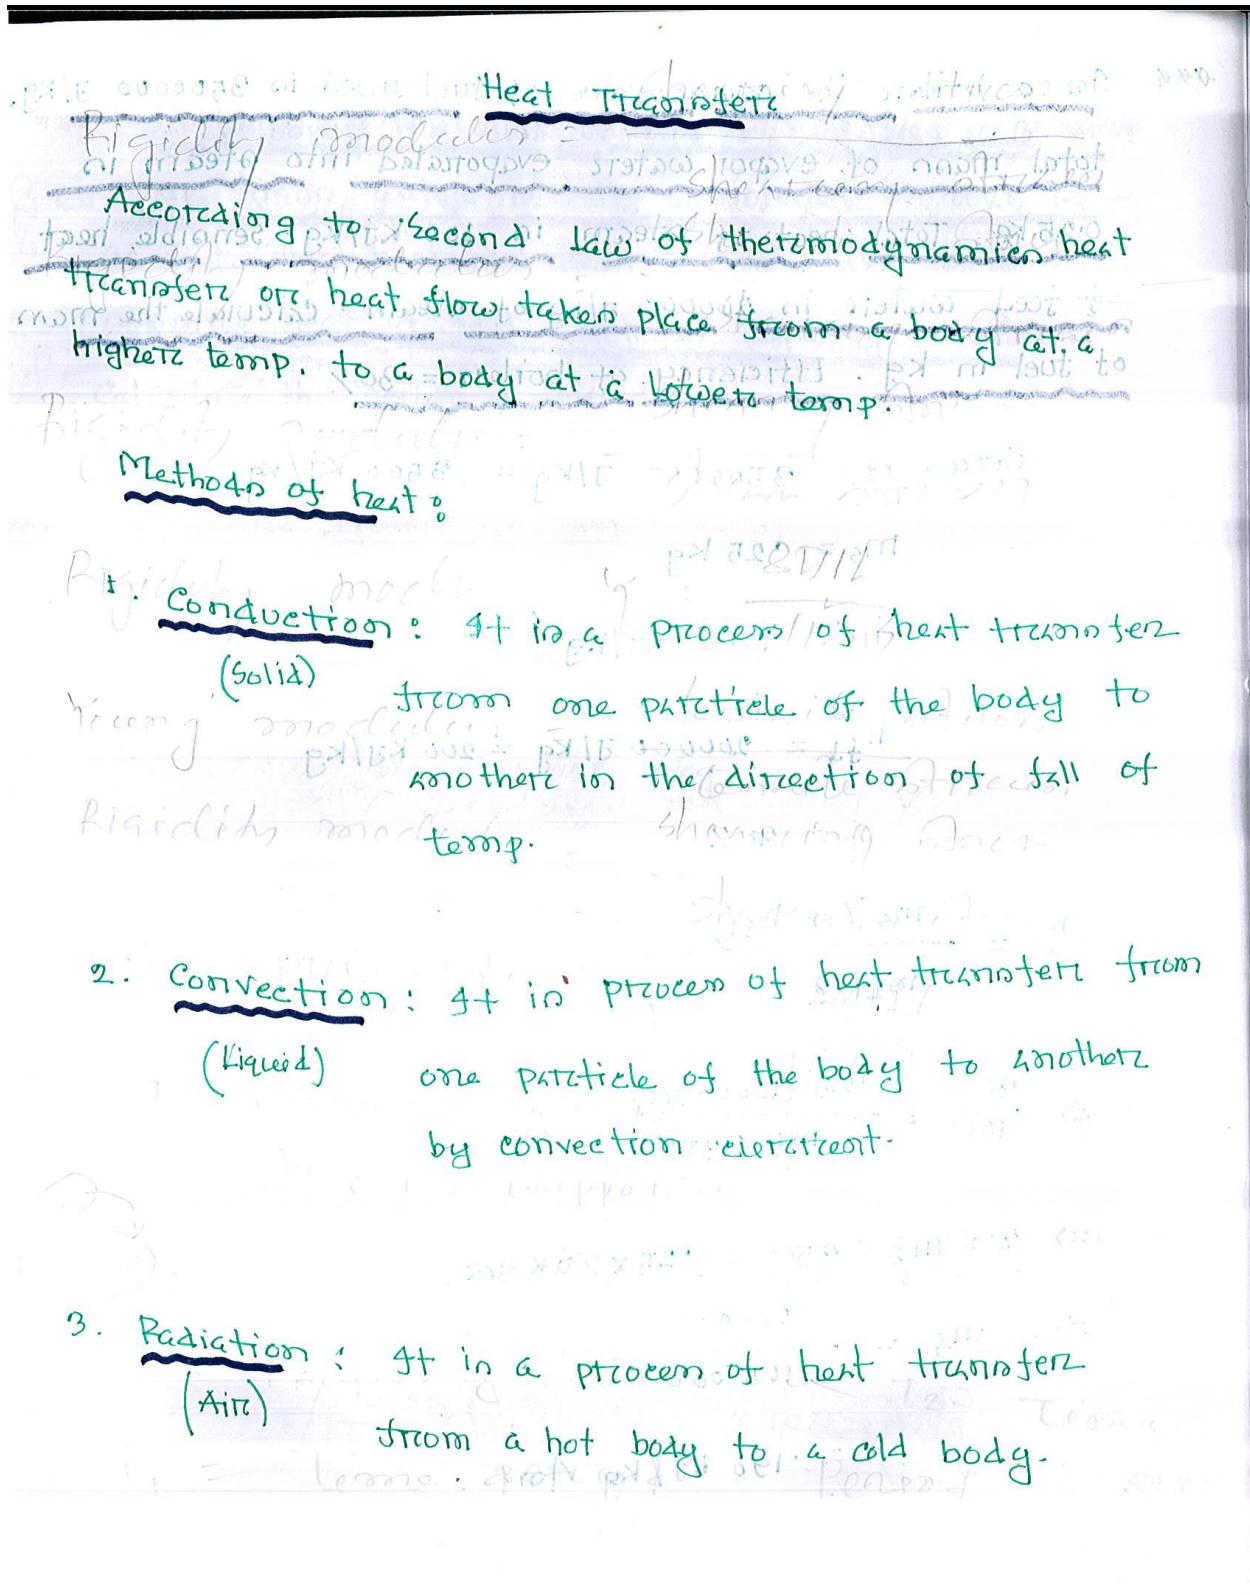 Heat Transfer
According to Second law of thermodynamics heat
transfer or heat flow takes place from a body at a
higher temp. to a body at a lower temp.
Methods of heat :
1. Conduction : It is a process of heat transfer
(Solid)
from one particle of the body to
another in the direction of fall of
temp.
2. Convection : It is process of heat transfer from
(Liquid)
one particle of the body to another
by convection
3. Radiation : It is a process of heat transfer
(Air)
from a hot body to a cold body.